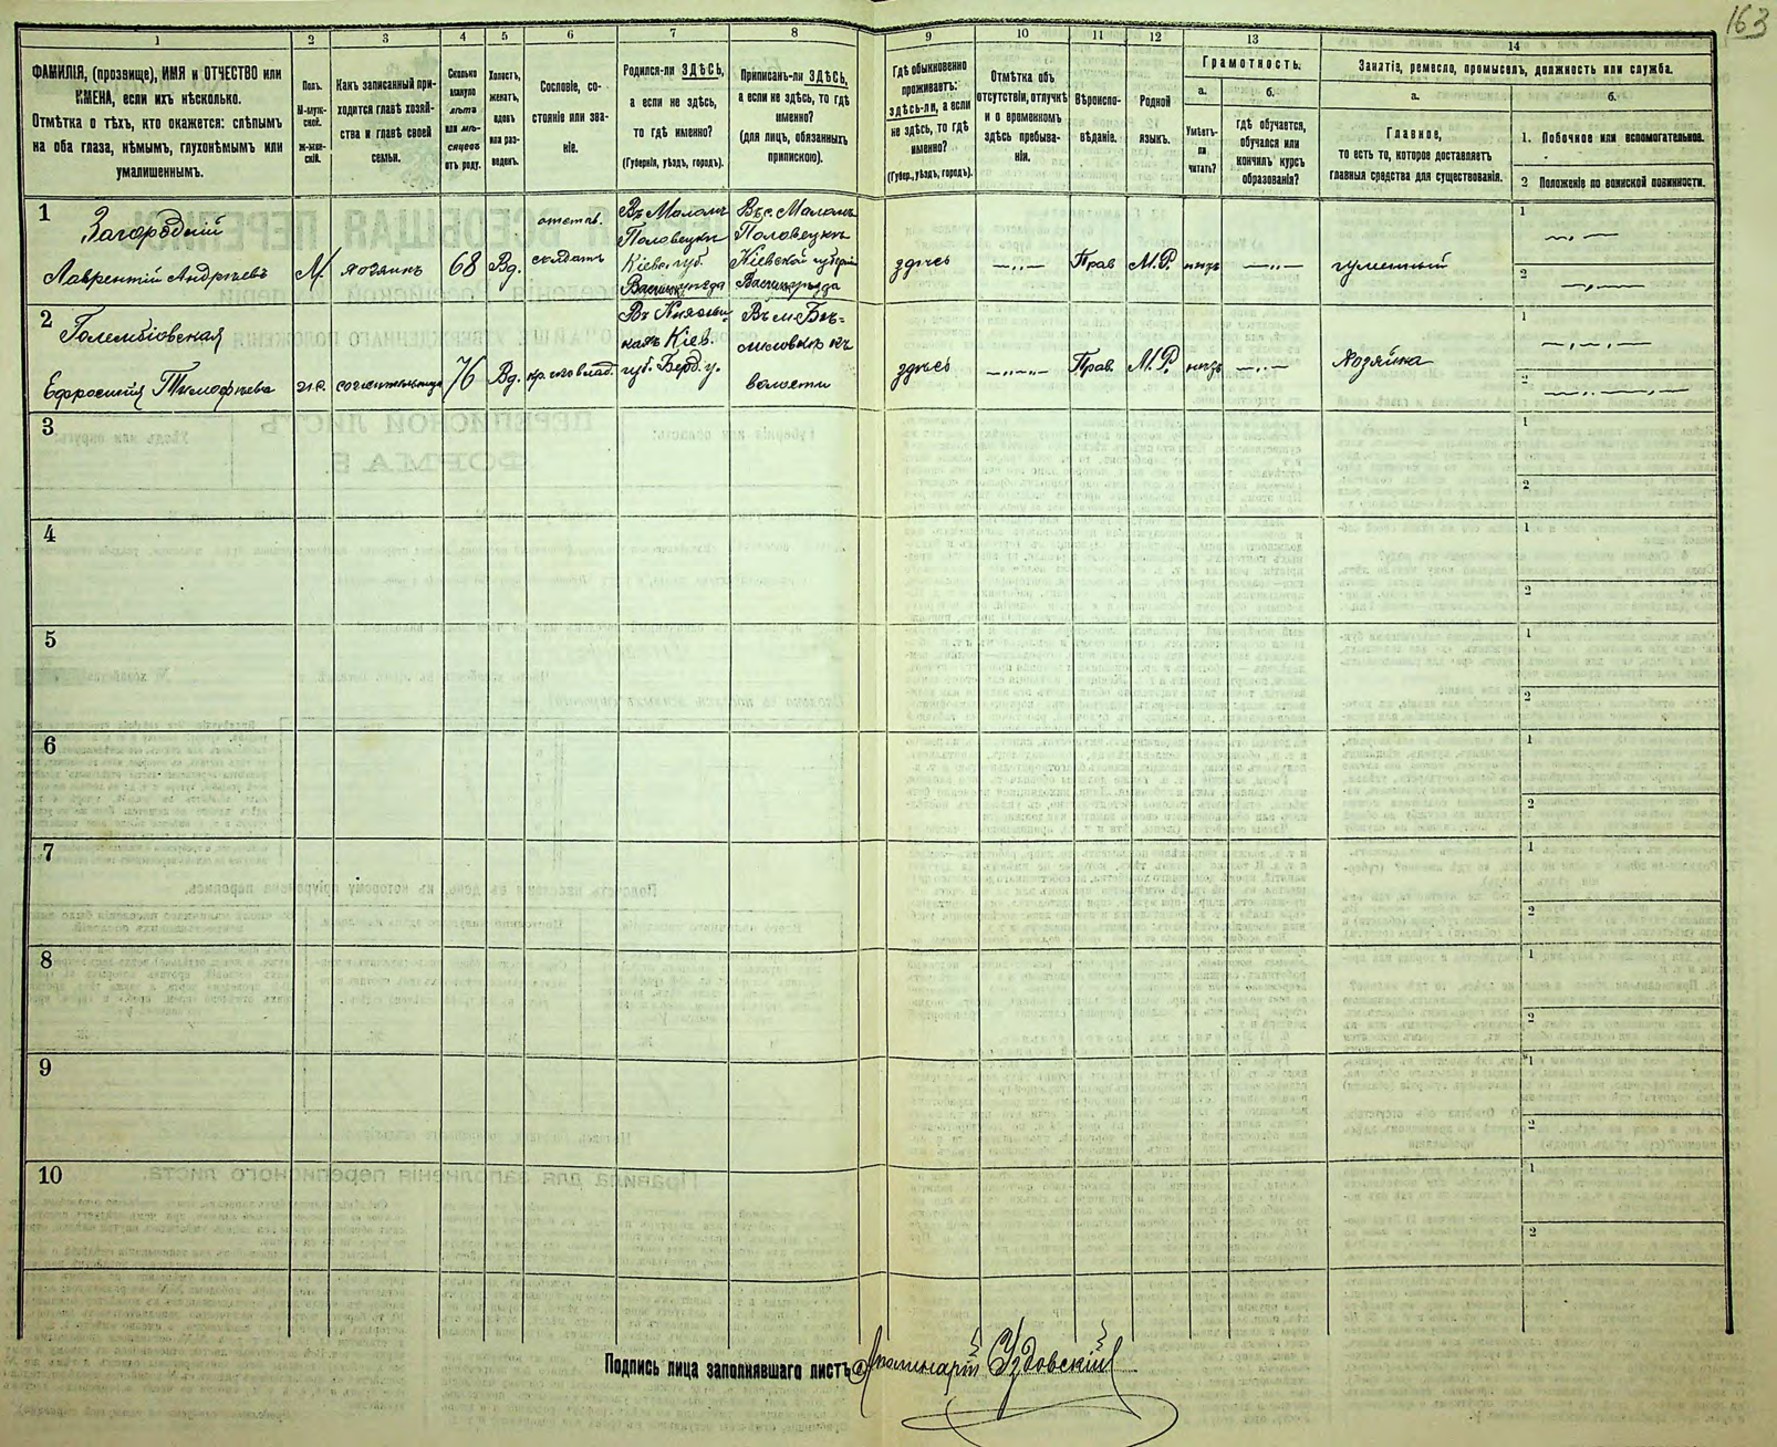 163
1
2
3
4
5
6
7
8
9
10
11
12
13
14
ФАМИЛІЯ, (прозвище), ИМЯ и ОТЧЕСТВО или
ИМЕНА, если ихъ нѣсколько.
Отмѣтка о тѣхъ, кто окажется: слѣпымъ
на оба глаза, нѣмымъ, глухонѣмымъ или
умалишеннымъ.
Полъ.
М-муж-
ской.
Ж-жен-
скій.
Какъ записанный при-
ходится главѣ хозяй-
ства и главѣ своей
семьи.
Сколько
минуло
лѣтъ
или мѣ-
сяцевъ
отъ роду.
Холостъ,
женатъ,
вдовъ
или раз-
веденъ.
Сословіе, со-
стояніе или зва-
ніе.
Родился-ли ЗДѢСЬ,
а если не здѣсь,
то гдѣ именно?
(Губернія, уѣздъ, городъ).
Приписанъ-ли ЗДѢСЬ,
а если не здѣсь, то гдѣ
именно?
(для лицъ, обязанныхъ
припискою).
Гдѣ обыкновенно
проживаетъ:
здѣсь-ли, а если
не здѣсь, то гдѣ
именно?
(Губер., уѣздъ, городъ).
Отмѣтка объ
отсутствіи, отлучкѣ
и о временномъ
здѣсь пребыва-
ніи.
Вѣроиспо-
вѣданіе.
Родной
языкъ.
Грамотность.
а.
Умѣетъ-
ли
читать?
б.
Гдѣ обучается,
обучался или
кончилъ курсъ
образованія?
Занятіе, ремесло, промыселъ, должность или служба.
а.
Главное,
то есть то, которое доставляетъ
главныя средства для существованія.
б.
1. Побочное или вспомогательное.
2 Положеніе по воинской повинности.
1
Загородній
Лаврентій Андрѣевъ
М.
хозяинъ
68
Вд.
отстав.
солдатъ
Въ Маломъ
Половецкѣ
Кіевс. губ.
Васильк. уѣзда
Въ с. Маломъ
Половецкѣ
Кіевской губерніи
Васильк. уѣзда
здѣсь
— „ —
Прав
М.Р.
нѣтъ
— „ —
гуменный
1
— „ —
2
— „ —
2
Голембіовская
Ефросинія Тимофѣева
ж.
сожительница
76
Вд.
кр. изъ влад.
Въ
Кіев.
губ. Берд. у.
Въ
волости
здѣсь
— „ —
Прав.
М.Р.
нѣтъ
— „ —
Хозяйка
1
— „ —
2
— „ —
3
1
2
4
1
2
5
1
2
6
1
2
7
1
2
8
1
2
9
1
2
10
1
2
Подпись лица заполнявшаго листъ Аполинарій Уздовскій